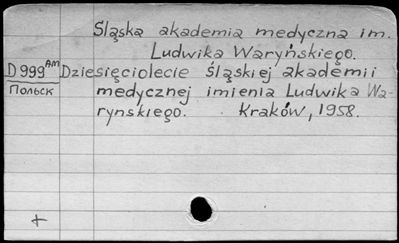 Śląska akademia medyczna im.
Ludwika Waryńskiego.
D999 AM Dziesięciolecie śląskiej akademii
Польск medycznej imienia Ludwika Wa-
rynskiego. Kraków, 1958.
+